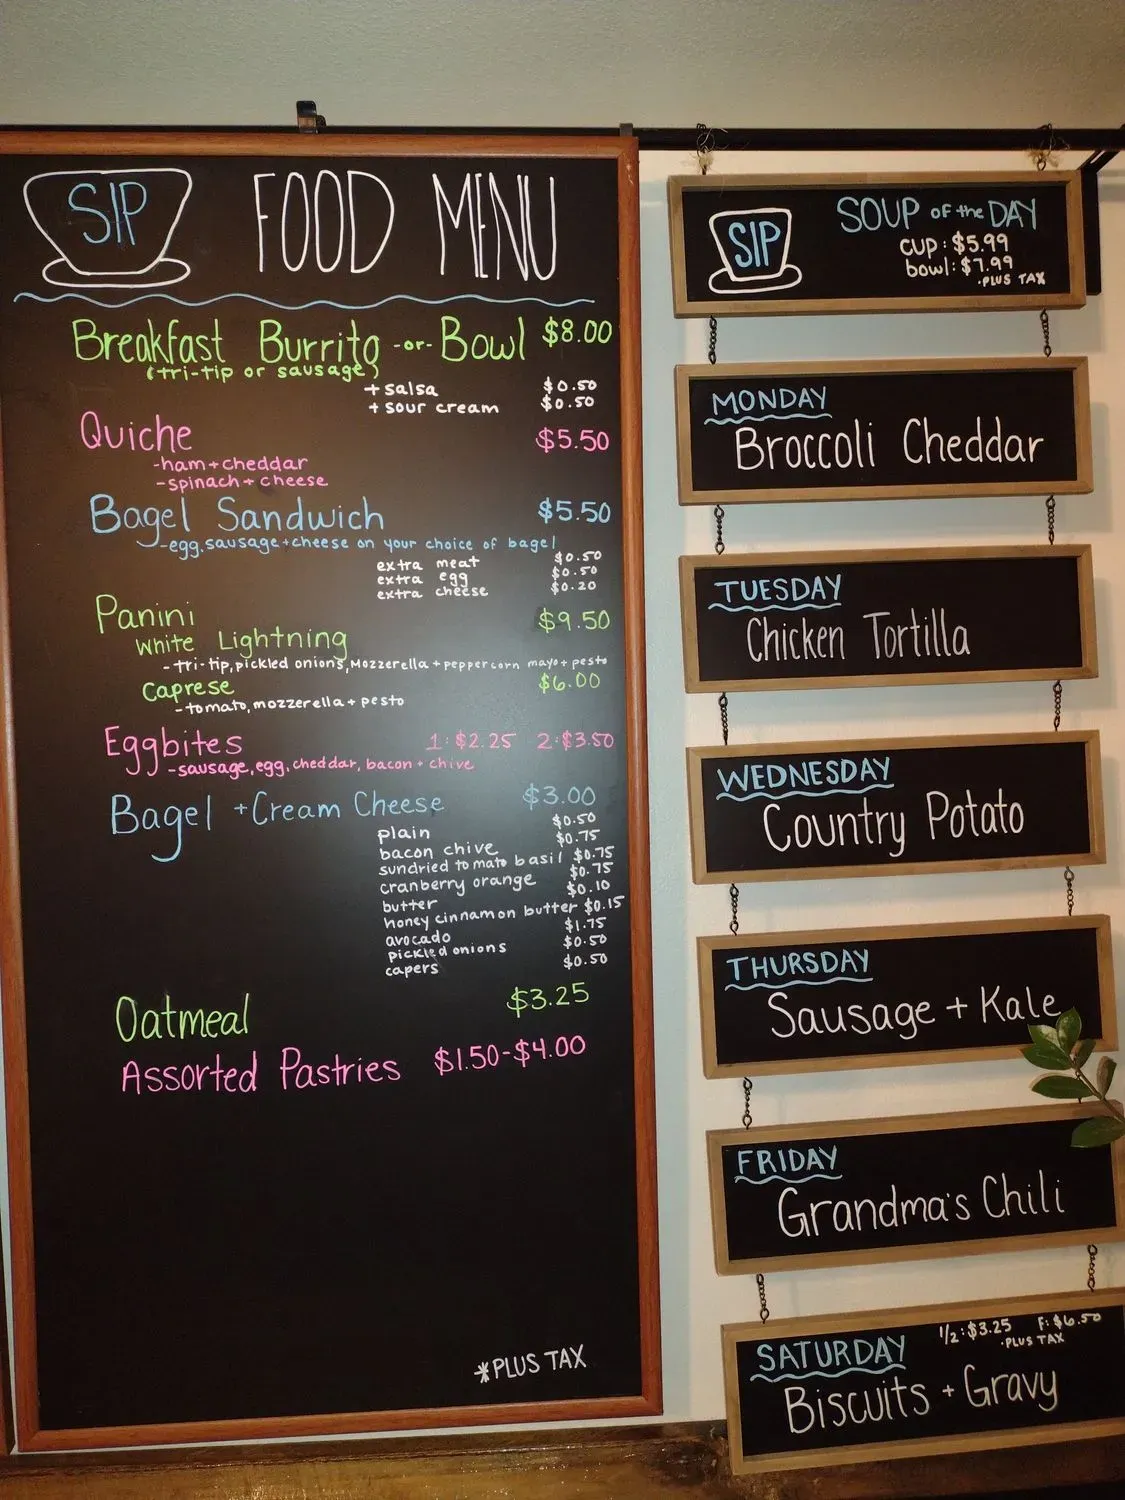 SIP FOOD MENU
Breakfast Burrito -or- Bowl $8.00
(tri-tip or sausage)
+ salsa $0.50
+ sour cream $0.50
Quiche $5.50
-ham + cheddar
-spinach + cheese
Bagel Sandwich $5.50
-egg, sausage + cheese on your choice of bagel
extra meat $0.50
extra egg $0.50
extra cheese $0.20
Panini
White Lightning $9.50
-tri-tip, pickled onions, Mozzerella + peppercorn mayo + pesto
Caprese $6.00
-tomato, mozzerella + pesto
Eggbites 1: $2.25 2: $3.50
-sausage, egg, cheddar, bacon + chive
Bagel + Cream Cheese $3.00
plain $0.50
bacon chive $0.75
sundried tomato basil $0.75
cranberry orange $0.75
butter $0.10
honey cinnamon butter $0.15
avocado $1.75
pickled onions $0.50
capers $0.50
Oatmeal $3.25
Assorted Pastries $1.50-$4.00
*PLUS TAX
SIP
SOUP of the DAY
cup: $5.99
bowl: $7.99
·PLUS TAX
MONDAY
Broccoli Cheddar
TUESDAY
Chicken Tortilla
WEDNESDAY
Country Potato
THURSDAY
Sausage + Kale
FRIDAY
Grandma's Chili
SATURDAY 1/2: $3.25 F: $6.50
·PLUS TAX
Biscuits + Gravy